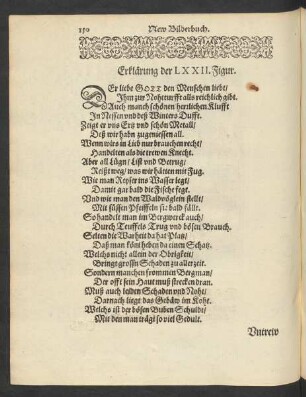 150 New Bilderbuch.
Erklärung der LXXII. Figur.
DEr liebe GOTT den Menschen liebt/
Ihm zur Nohtturfft alls reichlich gibt.
Auch manch schönen herrlichen Klufft
In Nessen und deß Winters Dufft.
Zeigt er uns Ertz und schön Metall/
Deß wir habn zugeniessen all.
Wenn wirs in Lieb nur brauchen recht/
Handelten als die trewen Knecht.
Aber all Lügn/ List und Betrug/
Reißt weg/ was wir hätten mit Fug.
Wie man Reyser ins Wasser legt/
Damit gar bald die Fische fegt.
Und wie man den Waldvöglein stellt/
Mit süssen Pfeifflein sie bald fällt.
So handelt man im Bergwerck auch/
Durch Teuffels Trug und bösen Brauch.
Selten die Warheit da hat Platz/
Daß man könt heben da einen Schatz.
Welchs nicht allein der Obrigkeit/
Bringt grossn Schaden zu aller zeit.
Sondern manchen frommen Bergman/
Der offt sein Haut muß strecken dran.
Muß auch leiden Schaden und Noht/
Darnach liegt das Gebäw im Koht.
Welchs ist der bösen Buben Schuldt/
Mit den man trägt so viel Gedult.
Untrew